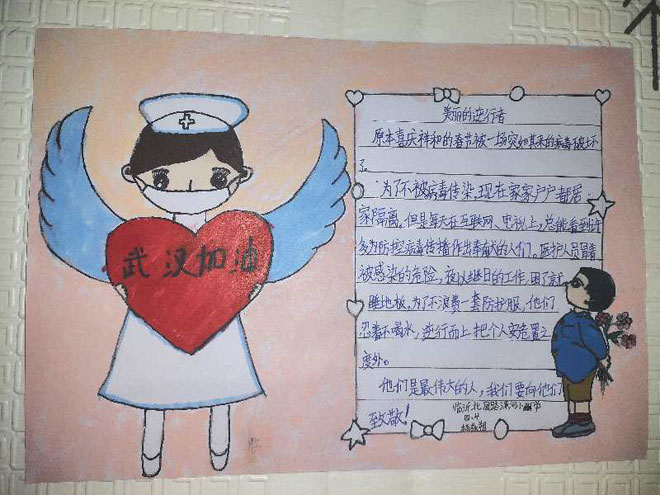 武汉加油
美丽的逆行者
原本喜庆祥和的春节被一场突如其来的病毒破坏
了
为了不被病毒传染,现在家家户户都居
家隔离。但是每天在互联网、电视上,总能看到许
多为防控病毒传播作出奉献的人们。医护人员冒着
被感染的危险,夜以继日的工作,困了就
睡地板,为了不浪费一套防护服,他们
忍着不喝水,逆行而上把个人安危置之
度外。
他们是最伟大的人,我们要向他们
致敬!